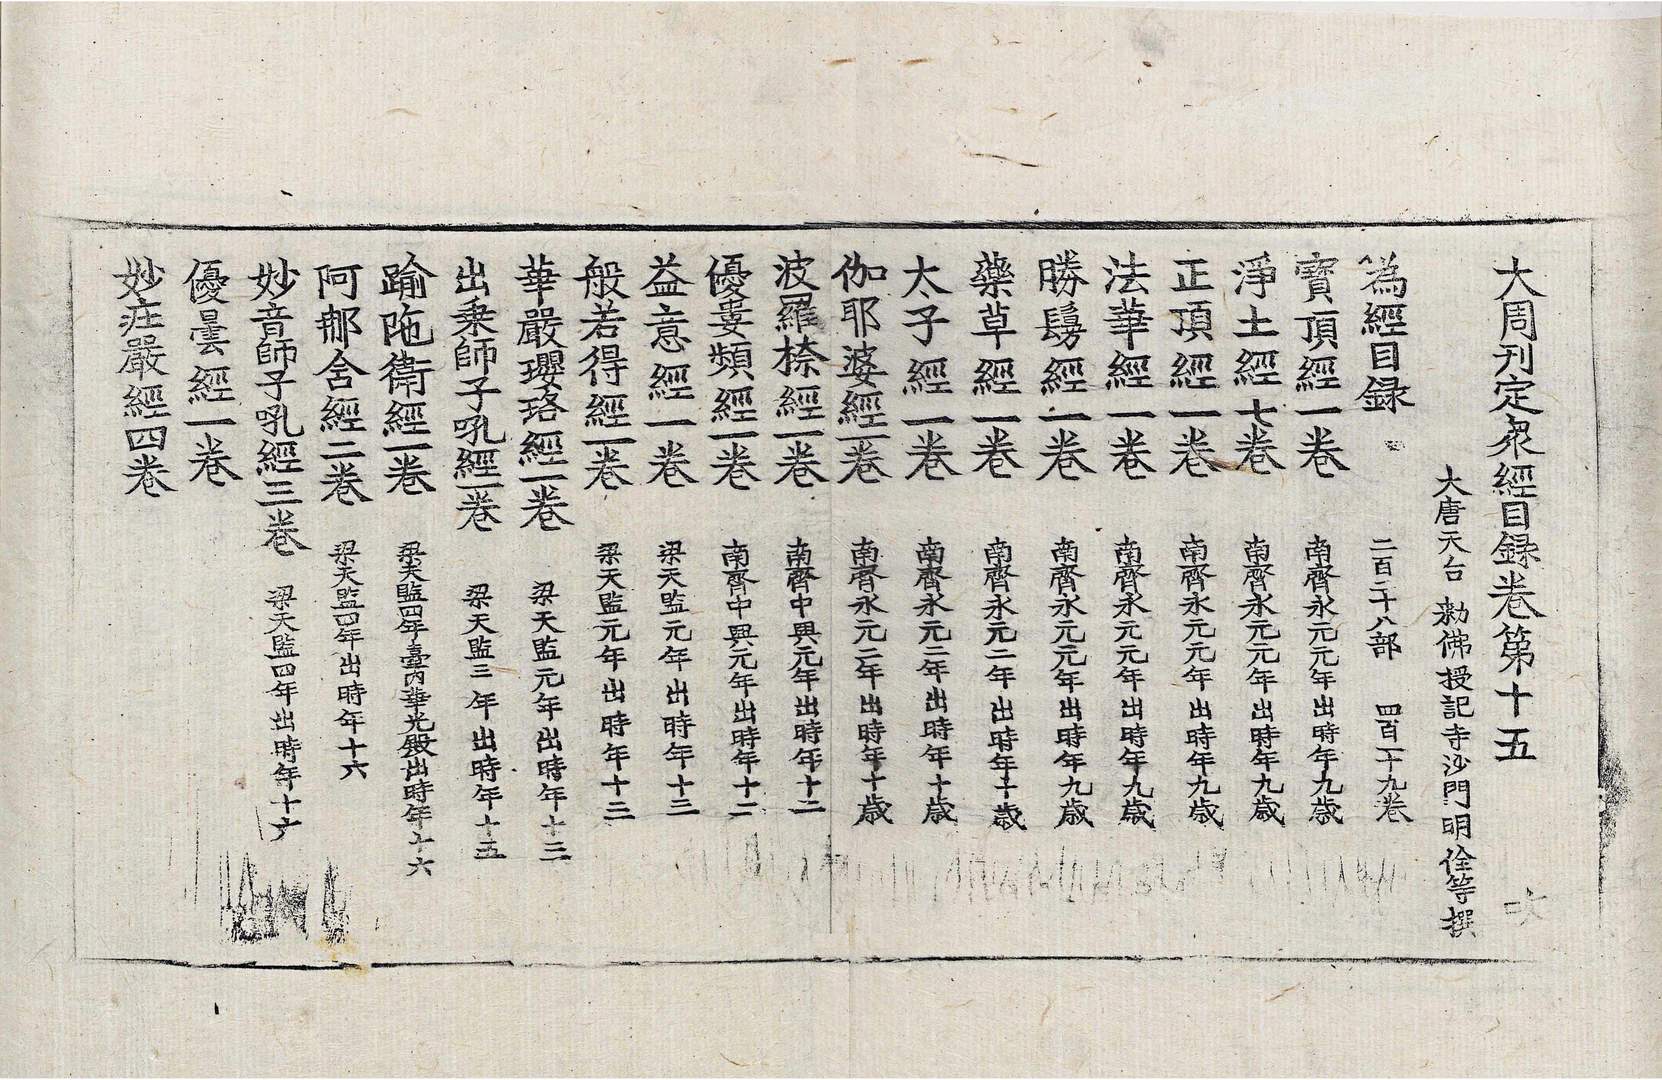 大周刊定衆經目録卷第十五
大唐天台 勅佛授記寺沙門明佺等撰
為經目録 二百二十八部 四百一十九卷
寶頂經一卷 南齊永元元年出時年九歳
淨土經七卷 南齊永元元年出時年九歳
正頂經一卷 南齊永元元年出時年九歳
法華經一卷 南齊永元元年出時年九歳
勝鬘經一卷 南齊永元元年出時年九歳
藥草經一卷 南齊永元二年出時年十歳
太子經一卷 南齊永元二年出時年十歳
伽耶婆經一卷 南齊永元二年出時年十歳
波羅㮈經一卷 南齊中興元年出時年十二
優婁頻經一卷 南齊中興元年出時年十二
益意經一卷 梁天監元年出時年十三
般若得經一卷 梁天監元年出時年十三
華嚴瓔珞經一卷 梁天監元年出時年十三
出乗師子吼經一卷 梁天監三年出時年十五
踰陁衛經一卷 梁天監四年臺内華光殿出時年十六
阿那含經二卷 梁天監四年出時年十六
妙音師子吼經三卷 梁天監四年出時年十六
優曇經一卷
妙庄嚴經四卷